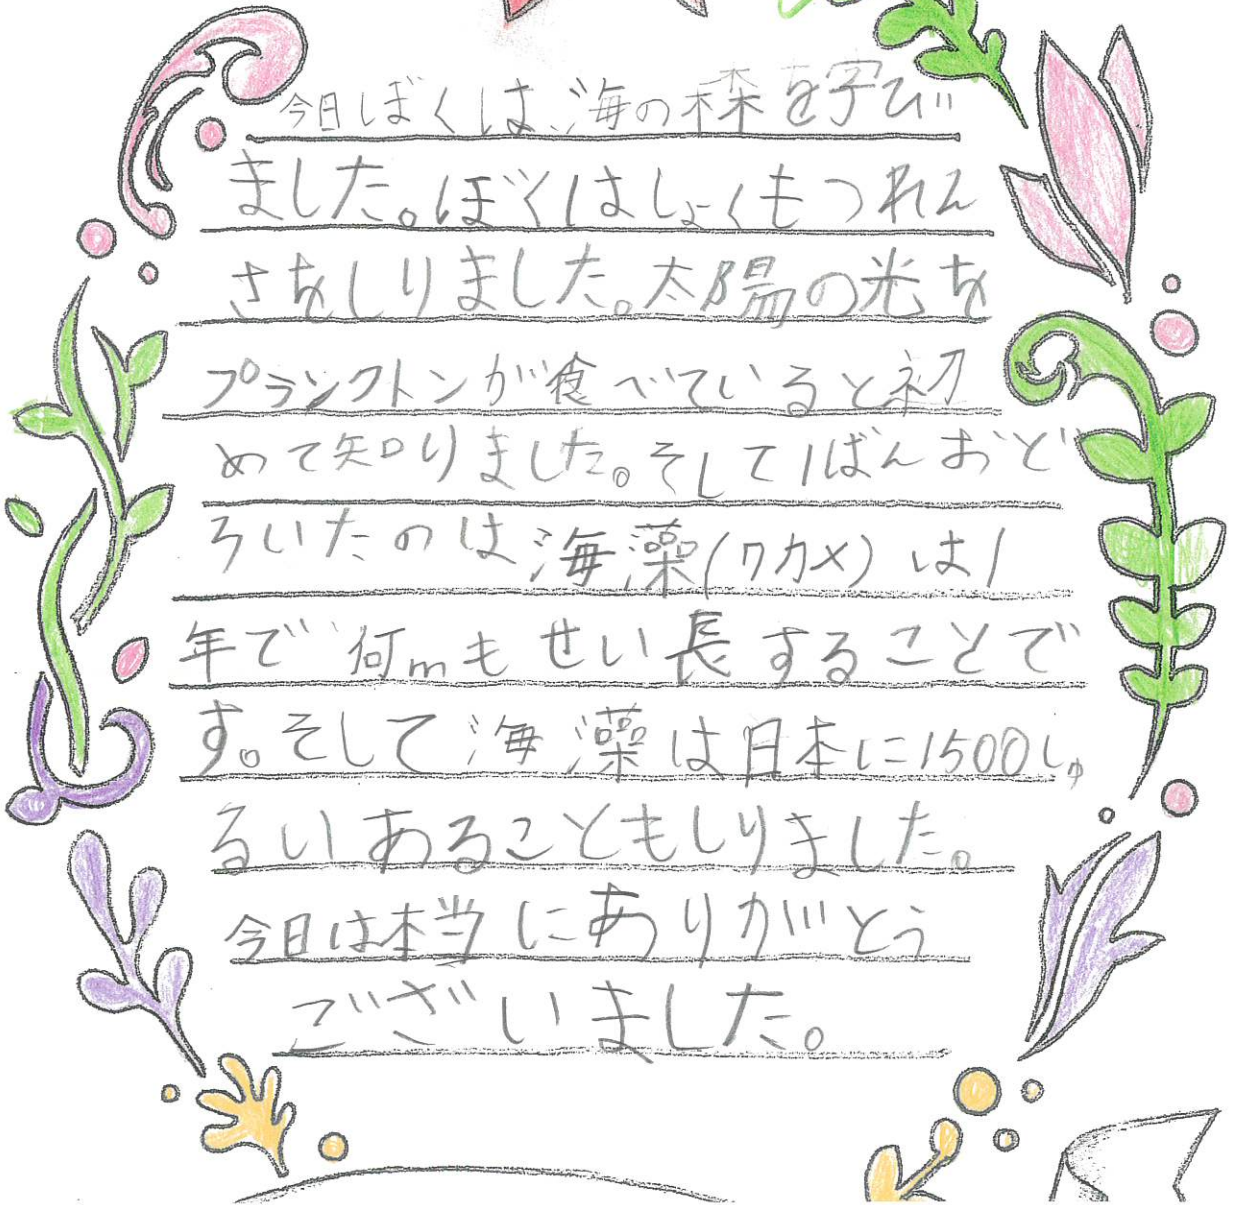 今日ぼくは、海の森を学び
ました。ぼくはしょくもつれん
さをしりました。太陽の光を
プランクトンが食べていると初
めて知りました。そして1ばんおど
ろいたのは海藻(ワカメ)は1
年で何mもせい長することで
す。そして海藻は日本に1500しゅ
るいあることもしりました。
今日は本当にありがとう
ございました。